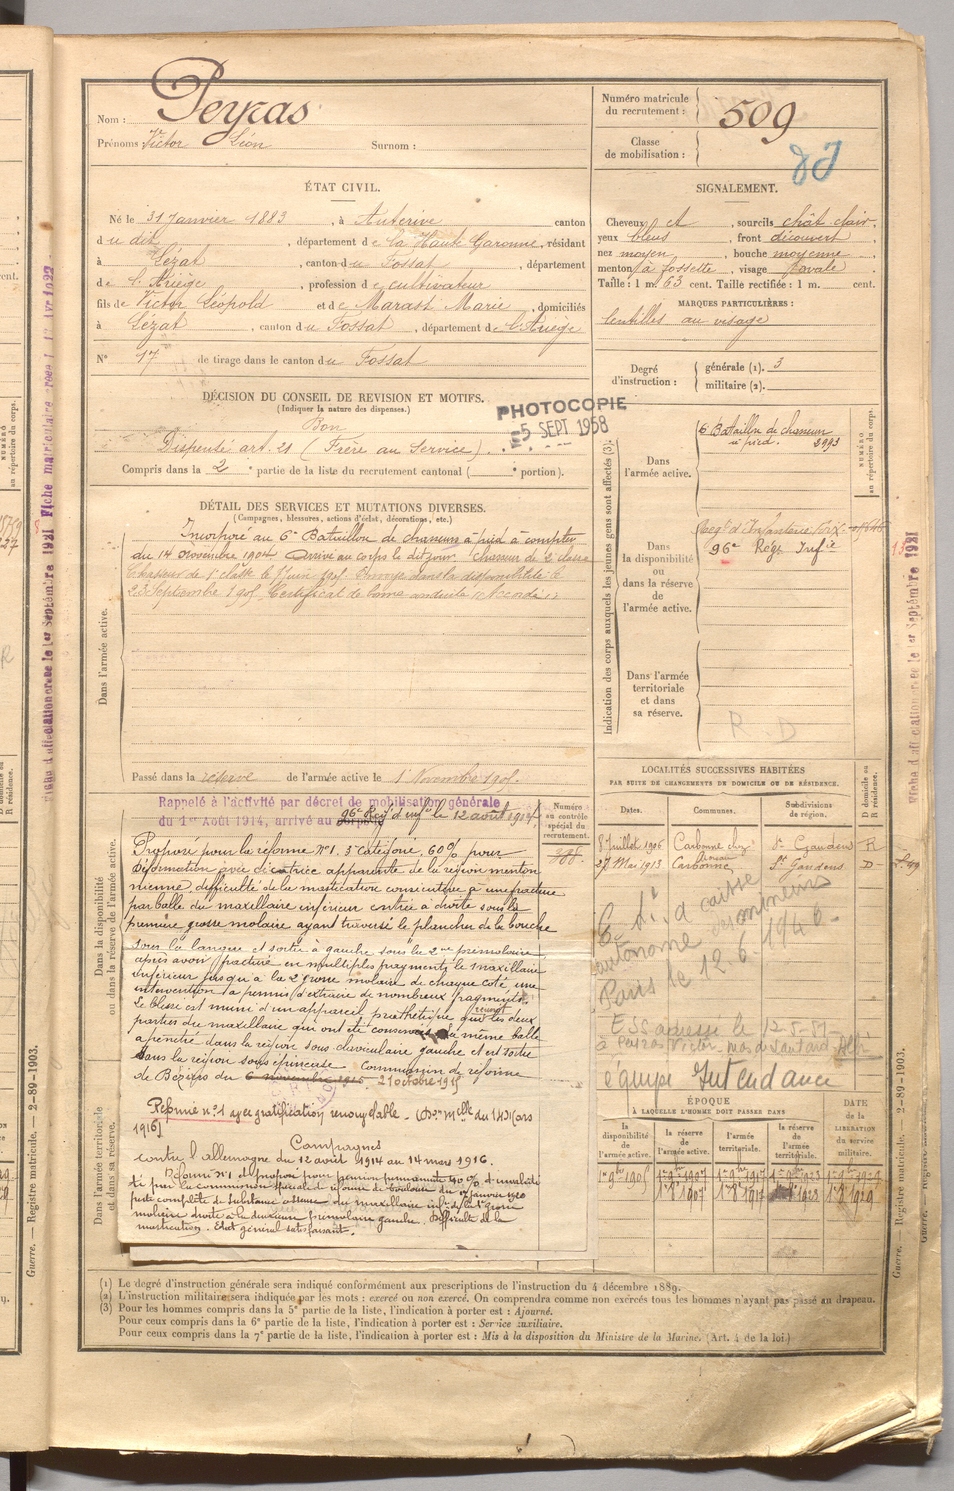 Nom : Peyras
Prénoms : Victor Léon Surnom :
Numéro matricule du recrutement : 509
Classe de mobilisation :
ÉTAT CIVIL.
Né le 31 Janvier 1883, à Auterive canton
du dit, département de la Haute Garonne, résidant
à Lézat, canton du Fossat, département
de l'Ariège, profession de cultivateur
fils de Victor Léopold et de Marast Marie, domiciliés
à Lézat, canton du Fossat, département de l'Ariège
N° 17 de tirage dans le canton du Fossat
SIGNALEMENT.
Cheveux et, sourcils chât clair,
yeux bleus, front découvert,
nez moyen, bouche moyenne,
menton à fossette, visage ovale
Taille : 1 m. 63 cent. Taille rectifiée : 1 m. cent.
MARQUES PARTICULIÈRES :
lentilles au visage
Degré d'instruction : générale (1). 3
militaire (2).
DÉCISION DU CONSEIL DE REVISION ET MOTIFS.
(Indiquer la nature des dispenses.)
Bon
Dispensé art. 21 (Frère au Service).
Compris dans la 2e partie de la liste du recrutement cantonal ( e portion).
PHOTOCOPIE
5 SEPT 1958
DÉTAIL DES SERVICES ET MUTATIONS DIVERSES.
(Campagnes, blessures, actions d'éclat, décorations, etc.)
Dans l'armée active.
Incorporé au 6e Bataillon de chasseurs à pied à compter
du 14 novembre 1904 Arrivé au corps le dit jour. Chasseur de 2e classe
Chasseur de 1e classe le juin 1905. Envoyé dans la disponibilité le
23 Septembre 1905. Certificat de bonne conduite "Accordé"
Passé dans la réserve de l'armée active le 1 Novembre 1905.
Indication des corps auxquels les jeunes gens sont affectés (3).
NUMÉRO au répertoire du corps.
Dans l'armée active.
6 Bataillon de chasseurs
à pied. 2993
Dans la disponibilité ou dans la réserve de l'armée active.
Régt d'Infanterie
96e Régt Infie
Dans l'armée territoriale et dans sa réserve.
R. D
Dans la disponibilité ou dans la réserve de l'armée active.
Rappelé à l'activité par décret de mobilisation générale
du 1er Août 1914, arrivé au corps le
96e Regt d'infie le 12 août 1914.
Numéro au contrôle spécial du recrutement.
Proposé pour la réforme N°1. 3e catégorie, 60% pour
Déformation avec cicatrice apparente de la région menton
nienne, difficulté de la mastication consécutive à une fracture
par balle du maxillaire inférieur entrée à droite sous la
première grosse molaire ayant traversé le plancher de la bouche
sous la langue et sortie à gauche sous la 2me prémolaire,
après avoir fracturé en multiples fragments le maxillaire
inférieur jusqu'à la 2e grosse molaire de chaque côté, une
intervention a permis d'extraire de nombreux fragments.
Le blessé est muni d'un appareil prothétique qui réunit les deux
parties du maxillaire qui ont été conservées. La même balle
a pénétré dans la région sous claviculaire gauche et est sortie
dans la région sous épineuse. Commission de réforme
de Béziers du 6 novembre 1915 21 octobre 1915
Réformé n°1 avec gratification renouvelable - (Don melle du 14 Mars
1916)
Campagnes
contre l'allemagne du 12 août 1914 au 14 mars 1916.
Réformé N°1 et proposé pour pension permanente 40% d'invalidité
par la commission spéciale de réforme de Toulouse du 17 janvier 1920
perte complète de substance osseuse du maxillaire infr de la 1e grosse
molaire droite à la deuxième prémolaire gauche. Difficulté de la
mastication. Etat général satisfaisant.
Dans l'armée territoriale et dans sa réserve.
LOCALITÉS SUCCESSIVES HABITÉES
PAR SUITE DE CHANGEMENTS DE DOMICILE OU DE RÉSIDENCE.
Dates. Communes. Subdivisions de région. D domicile ou R résidence.
8 Juillet 1906 Carbonne chez St Gaudens R
27 Mai 1913 Carbonne St Gaudens D
caisse
autonome des mineurs
Paris le 12.6.1946
à Peyras Victor
équipe Intendance
ÉPOQUE
À LAQUELLE L'HOMME DOIT PASSER DANS
la disponibilité de l'armée active. la réserve de l'armée active. l'armée territoriale. la réserve de l'armée territoriale. DATE de la LIBÉRATION du service militaire.
1er 9bre 1905 1er 9bre 1907 1er 9bre 1917 1er 9bre 1923 1er 9bre 1929
1er 8 1907 1er 8 1917 1923 1er 8 1929
(1) Le degré d'instruction générale sera indiqué conformément aux prescriptions de l'instruction du 4 décembre 1889.
(2) L'instruction militaire sera indiquée par les mots : exercé ou non exercé. On comprendra comme non exercés tous les hommes n'ayant pas passé au drapeau.
(3) Pour les hommes compris dans la 5e partie de la liste, l'indication à porter est : Ajourné.
Pour ceux compris dans la 6e partie de la liste, l'indication à porter est : Service auxiliaire.
Pour ceux compris dans la 7e partie de la liste, l'indication à porter est : Mis à la disposition du Ministre de la Marine. (Art. 4 de la loi.)
Guerre. — Registre matricule. — 2-89-1903.